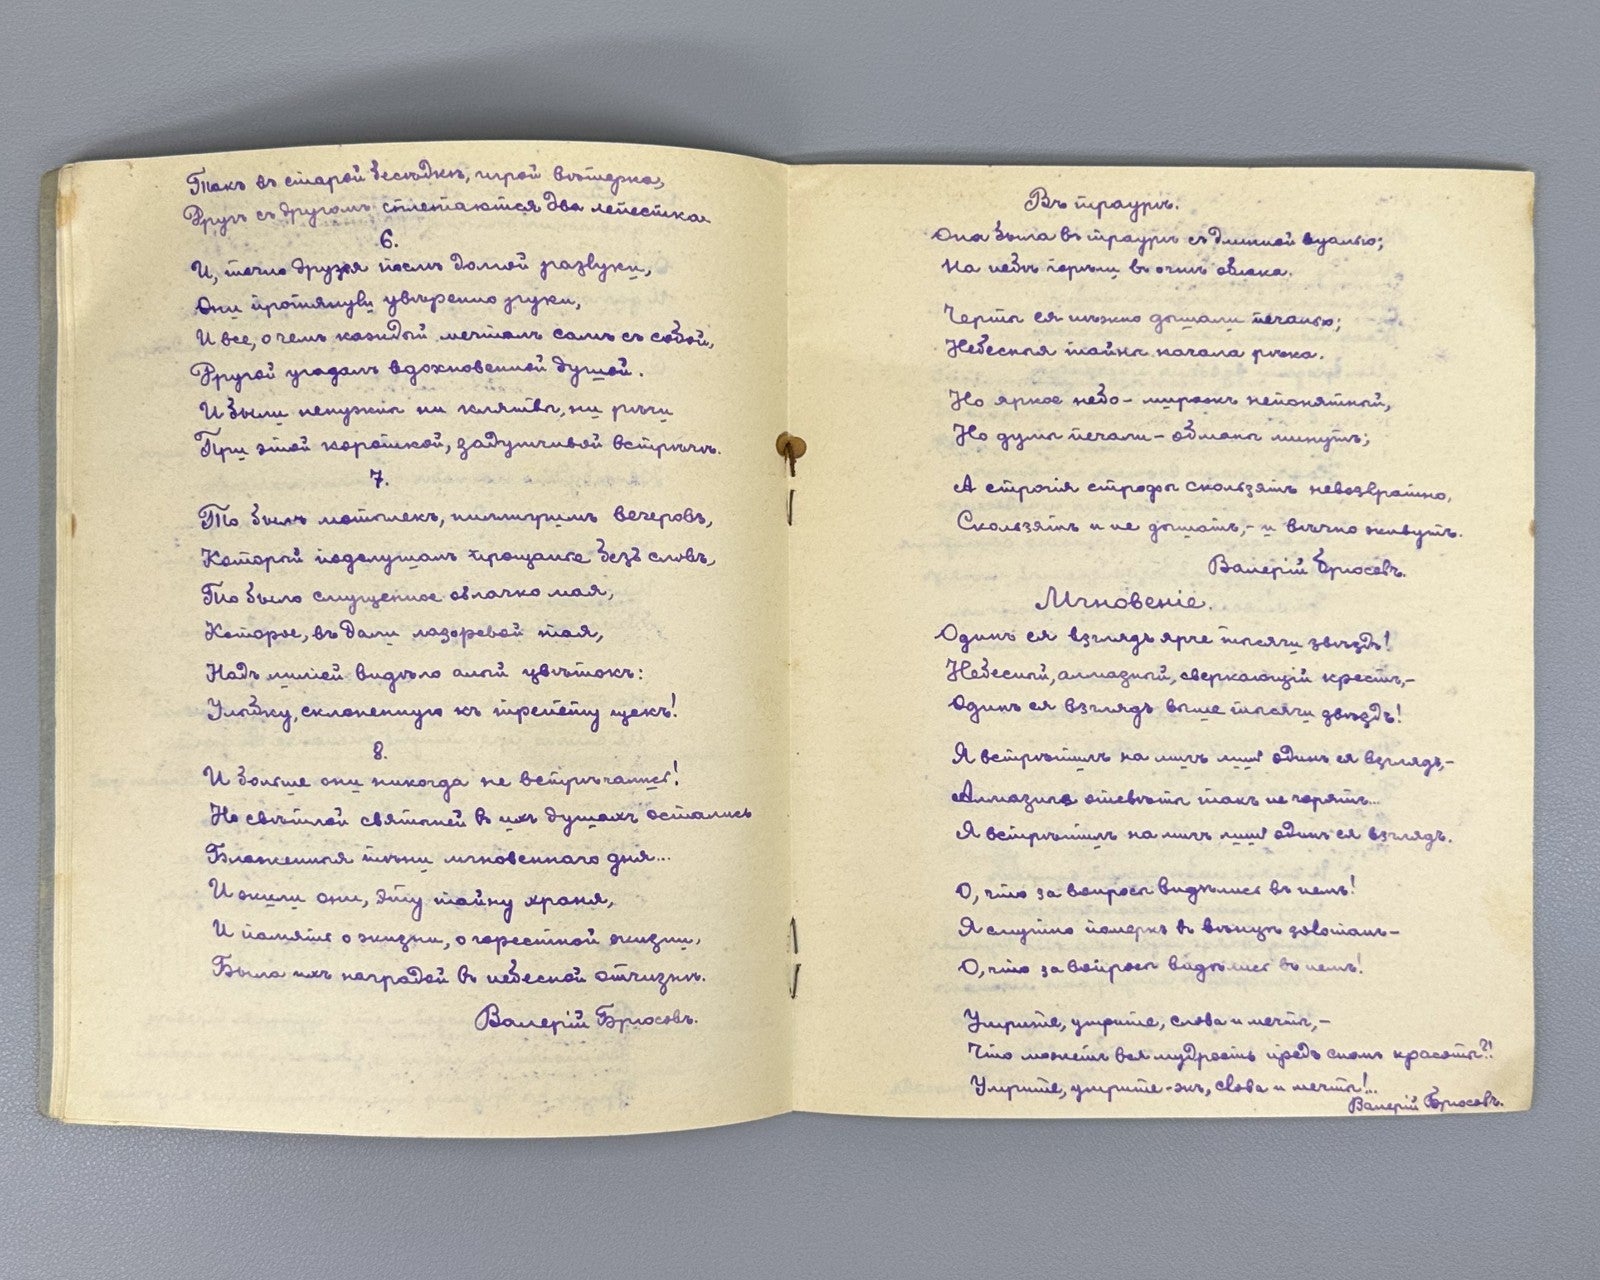 Такъ въ старой бесѣдкѣ, игрой вѣтерка,
Другъ съ другомъ сплетаются два лепестка.
6.
И, точно друзья послѣ долгой разлуки,
Они протянули увѣренно руки,
И все, о чемъ каждый мечталъ самъ съ собой,
Другой угадалъ вдохновенной душой.
И были ненужны ни клятвы, ни рѣчи
При этой короткой, задумчивой встрѣчѣ.
7.
То былъ мотылекъ, пиллигримъ вечеровъ,
Который подслушалъ прощанье безъ словъ,
То было смущенное облачко мая,
Которое, въ дали лазоревой тая,
Надъ лиліей видѣло алый цвѣтокъ:
Улыбку, склоненную къ трепету щекъ!
8.
И больше они никогда не встрѣчались!
Но свѣтлой святыней въ ихъ душахъ остались
Блаженныя тѣни мгновеннаго дня...
И жили они, эту тайну храня,
И память о жизни, о горестной жизни,
Была ихъ наградой въ небесной отчизнѣ.
Валерій Брюсовъ.
Въ траурѣ.
Она была въ траурѣ съ длинной вуалью;
На небѣ горѣли въ огнѣ облака.
Черты ея нѣжно дышали печалью;
Небесныя тайны качала рѣка.
Но яркое небо - миражъ непонятный,
Но думы печали - обманы минутъ;
А строгія строфы скользятъ невозвратно,
Скользятъ и не дышатъ, - и вѣчно живутъ.
Валерій Брюсовъ.
Мгновеніе.
Одинъ ея взглядъ ярче тысячи звѣздъ!
Небесный, алмазный, сверкающій крестъ,-
Одинъ ея взглядъ выше тысячи звѣздъ!
Я встрѣтилъ на мигъ лишь одинъ ея взглядъ,-
Алмазные отсвѣты такъ не горятъ...
Я встрѣтилъ на мигъ лишь одинъ ея взглядъ.
О, что за вопросы виднѣлись въ немъ!
Я смутно померкъ въ вѣнцѣ золотомъ-
О, что за вопросы виднѣлись въ немъ!
Умрите, умрите, слова и мечты,-
Что можетъ вся мудрость предъ сномъ красоты?!
Умрите, умрите-жъ, слова и мечты!...
Валерій Брюсовъ.